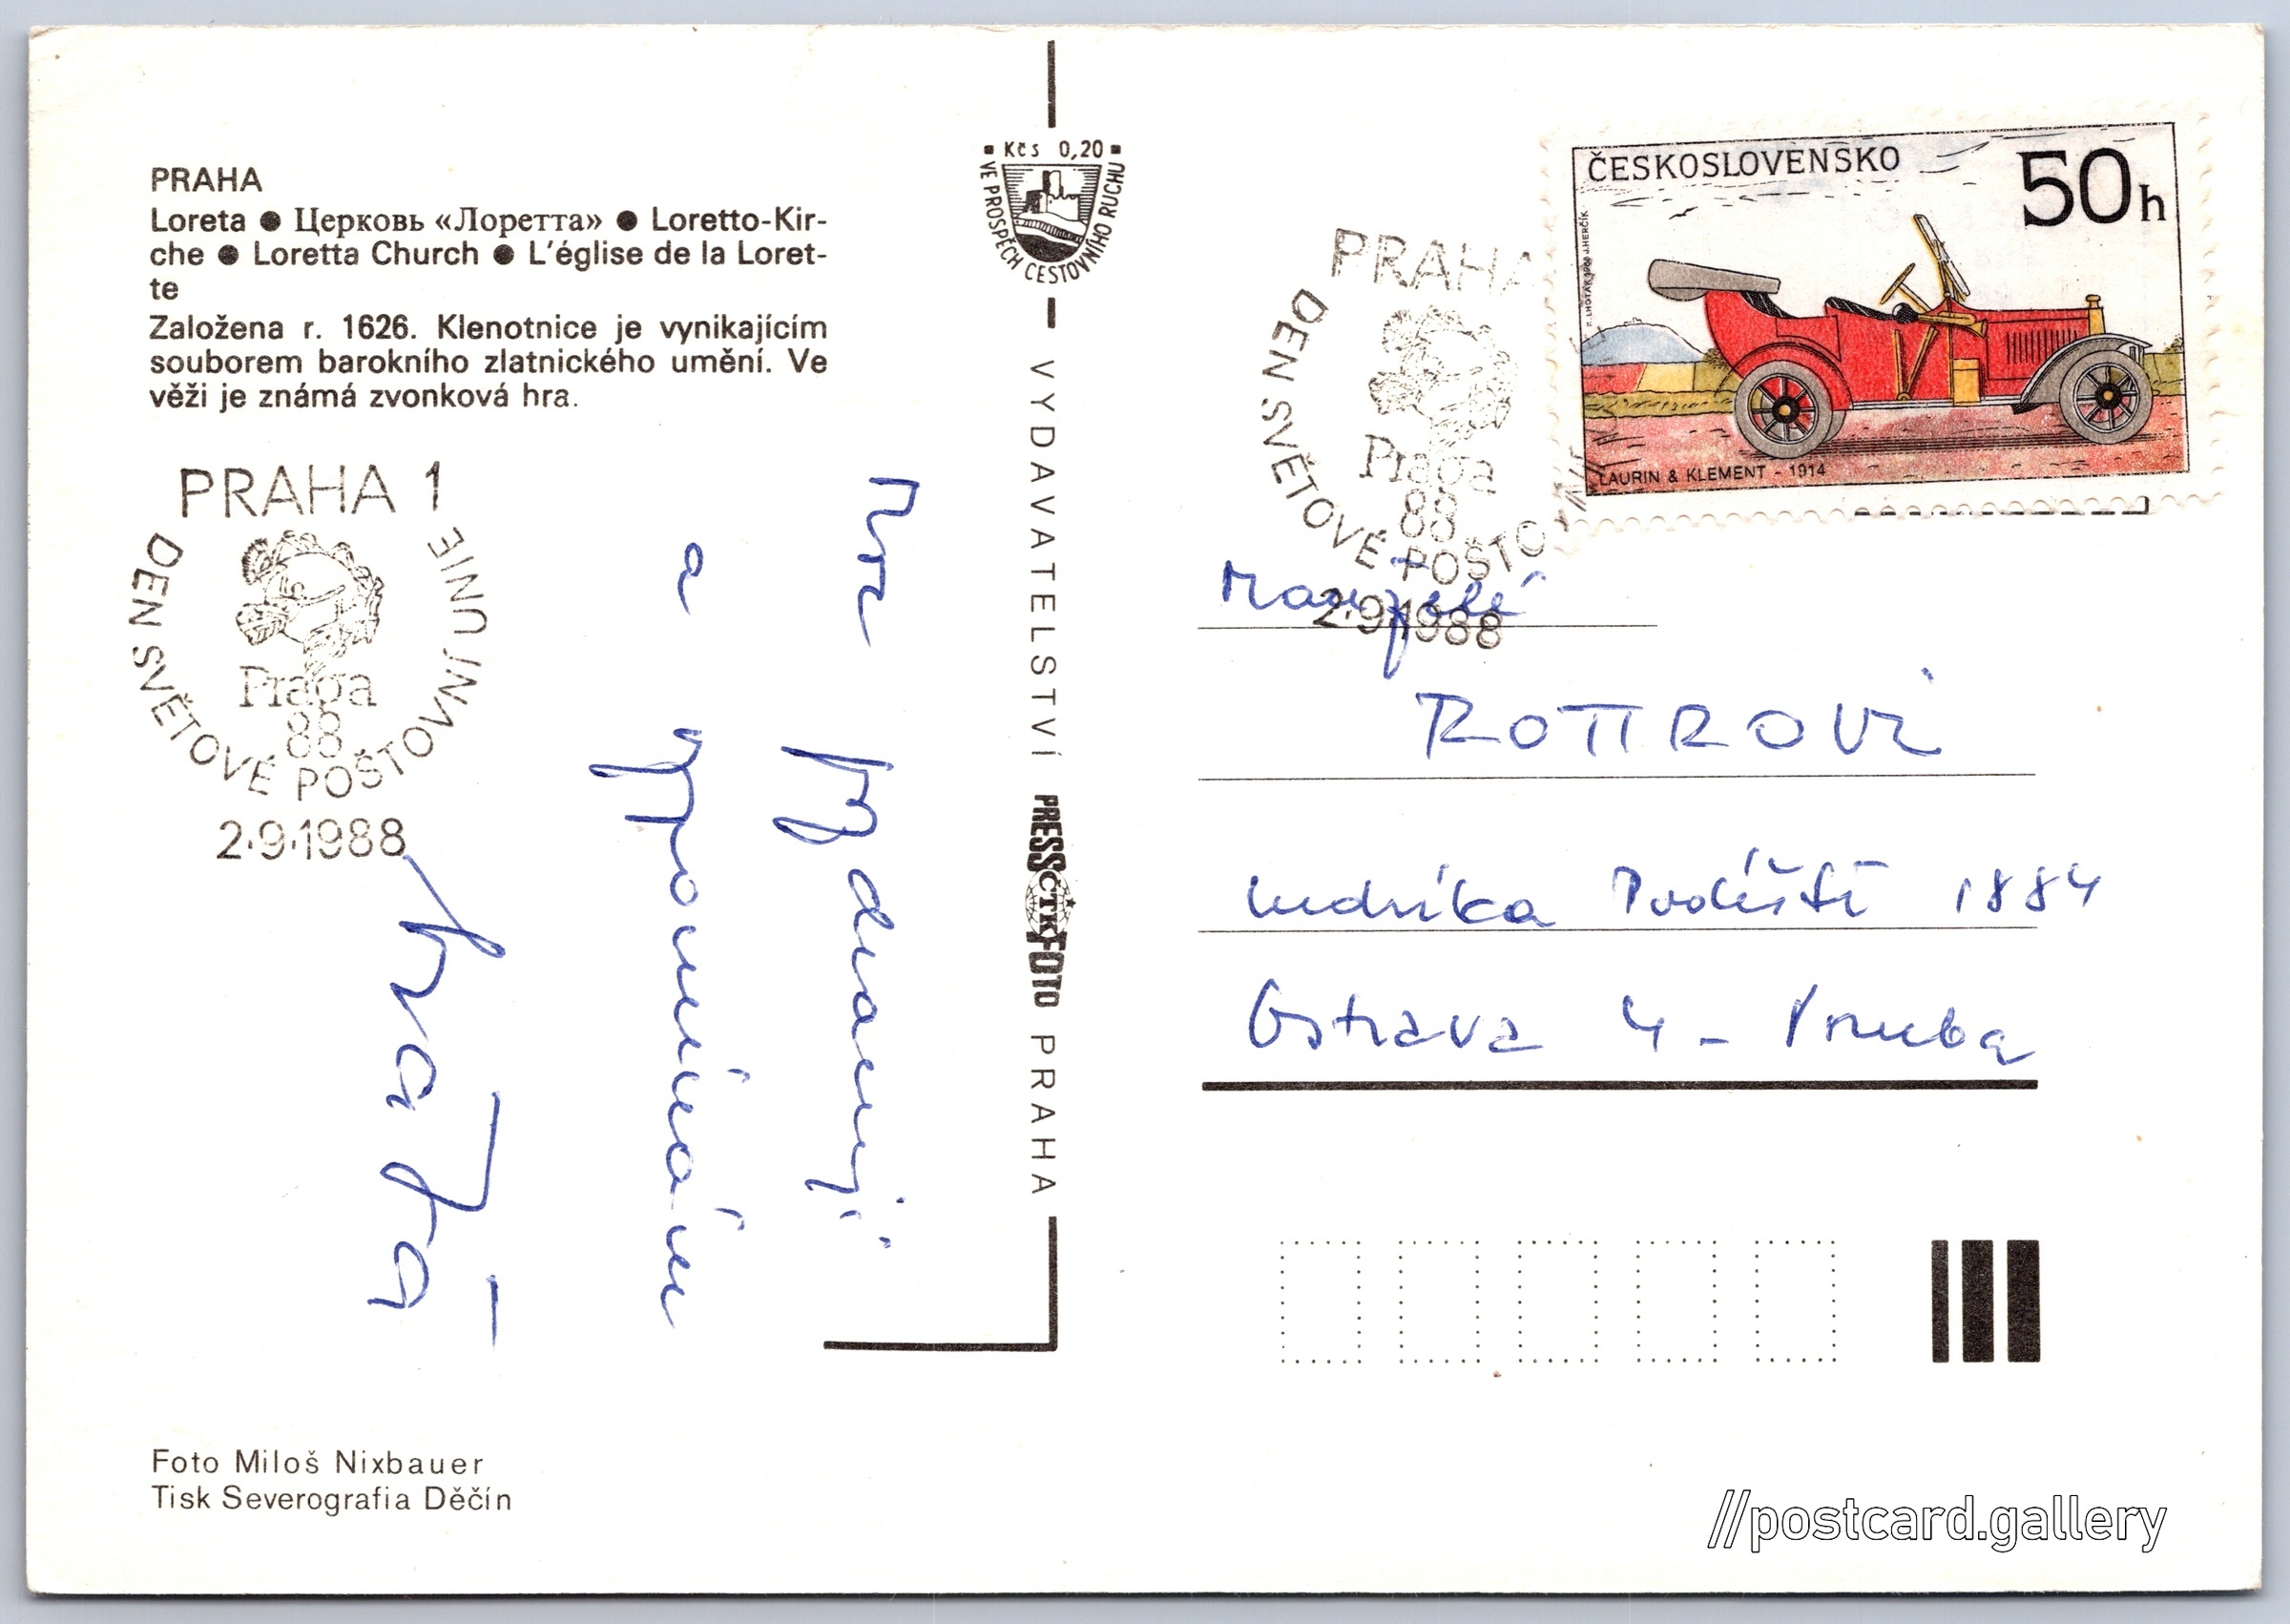 PRAHA
Loreta ● Церковь «Лоретта» ● Loretto-Kir-
che ● Loretta Church ● L'église de la Loret-
te
Založena r. 1626. Klenotnice je vynikajícím
souborem barokního zlatnického umění. Ve
věži je známá zvonková hra.
PRAHA 1
DEN SVĚTOVÉ POŠTOVNÍ UNIE
Praga
88
2.9.1988
a
Foto Miloš Nixbauer
Tisk Severografia Děčín
Kčs 0,20
VE PROSPĚCH CESTOVNÍHO RUCHU
VYDAVATELSTVÍ PRESSFOTO PRAHA
ČTK
ČESKOSLOVENSKO
50h
K. LHOTÁK 1988 J. HERČÍK
LAURIN & KLEMENT - 1914
PRAHA
DEN SVĚTOVÉ POŠTOVNÍ
Praga
88
2.9.1988
Manželé
ROTTROVI
Ludvíka Podéště 1884
Ostrava 4 - Poruba
//postcard.gallery